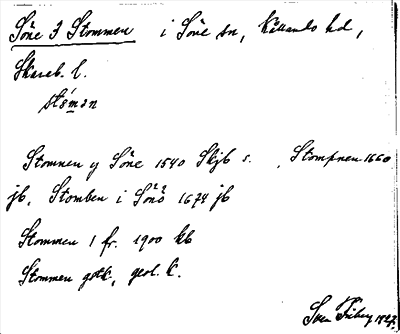 Söne 3 Stommen i Söne sn, Kållands hd,
Skarab. l.
stå̀mən
Stommen y Söne 1540 Skjb s. , Stompnen 1660
jb, Stomben i Sönö 1674 jb
Stommen 1 fr. 1900 kb
Stommen gotk, geol. k.
Sven Friberg 1927.